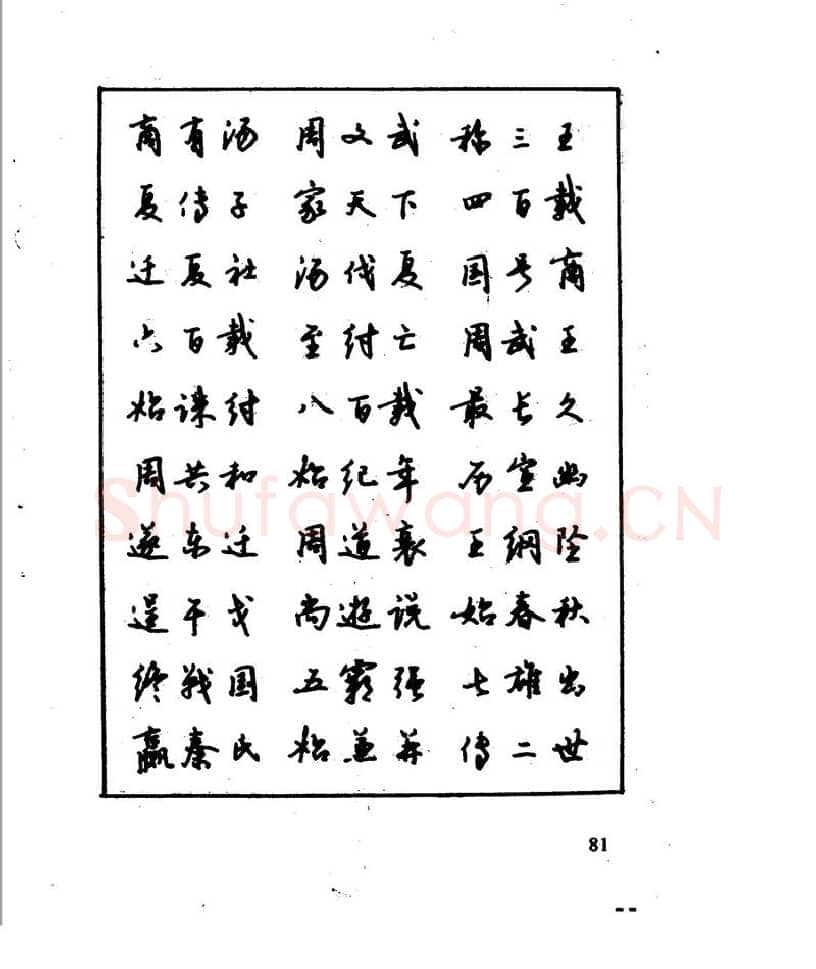 商有汤 周文武 称三王
夏传子 家天下 四百载
迁夏社 汤伐夏 国号商
六百载 至纣亡 周武王
始诛纣 八百载 最长久
周共和 始纪年 历宣幽
遂东迁 周道衰 王纲坠
逞干戈 尚遊说 始春秋
终战国 五霸强 七雄出
嬴秦氏 始兼并 传二世
Shufawang.CN
81